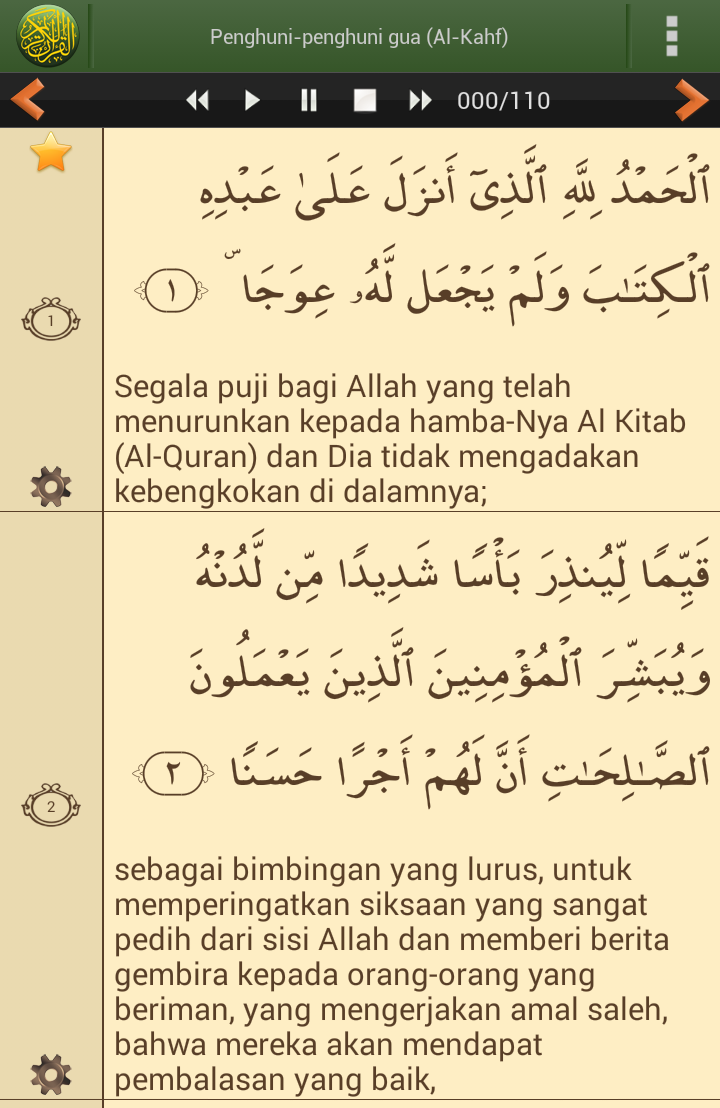 Penghuni-penghuni gua (Al-Kahf)
000/110
ٱلْحَمْدُ لِلَّهِ ٱلَّذِىٓ أَنزَلَ عَلَىٰ عَبْدِهِ
ٱلْكِتَـٰبَ وَلَمْ يَجْعَل لَّهُۥ عِوَجَا ۜ ١
1
Segala puji bagi Allah yang telah
menurunkan kepada hamba-Nya Al Kitab
(Al-Quran) dan Dia tidak mengadakan
kebengkokan di dalamnya;
قَيِّمًا لِّيُنذِرَ بَأْسًا شَدِيدًا مِّن لَّدُنْهُ
وَيُبَشِّرَ ٱلْمُؤْمِنِينَ ٱلَّذِينَ يَعْمَلُونَ
ٱلصَّـٰلِحَـٰتِ أَنَّ لَهُمْ أَجْرًا حَسَنًا ٢
2
sebagai bimbingan yang lurus, untuk
memperingatkan siksaan yang sangat
pedih dari sisi Allah dan memberi berita
gembira kepada orang-orang yang
beriman, yang mengerjakan amal saleh,
bahwa mereka akan mendapat
pembalasan yang baik,